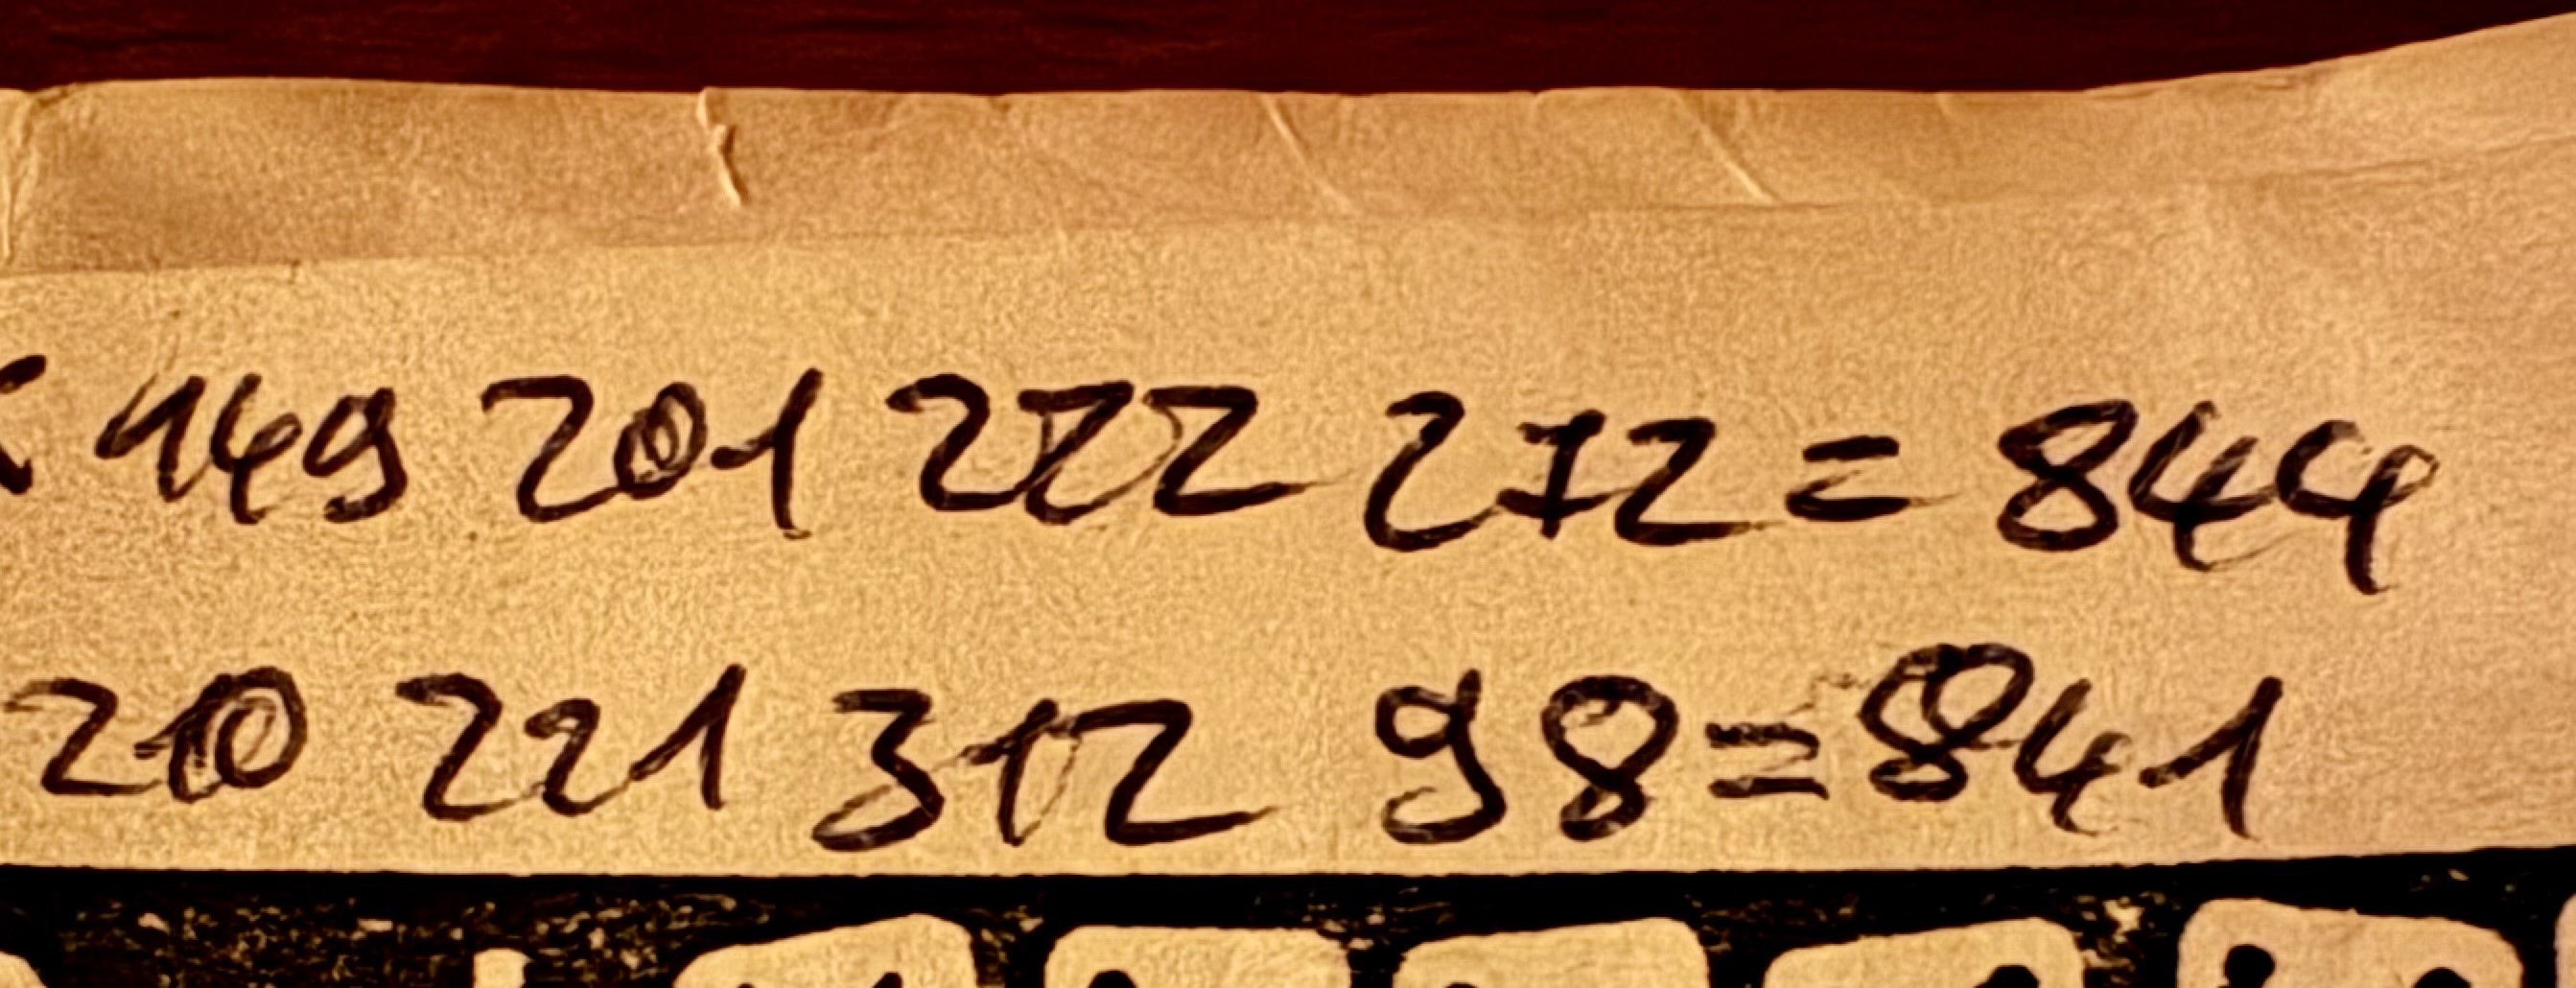 149 201 222 272 = 844
210 221 312 98 = 841